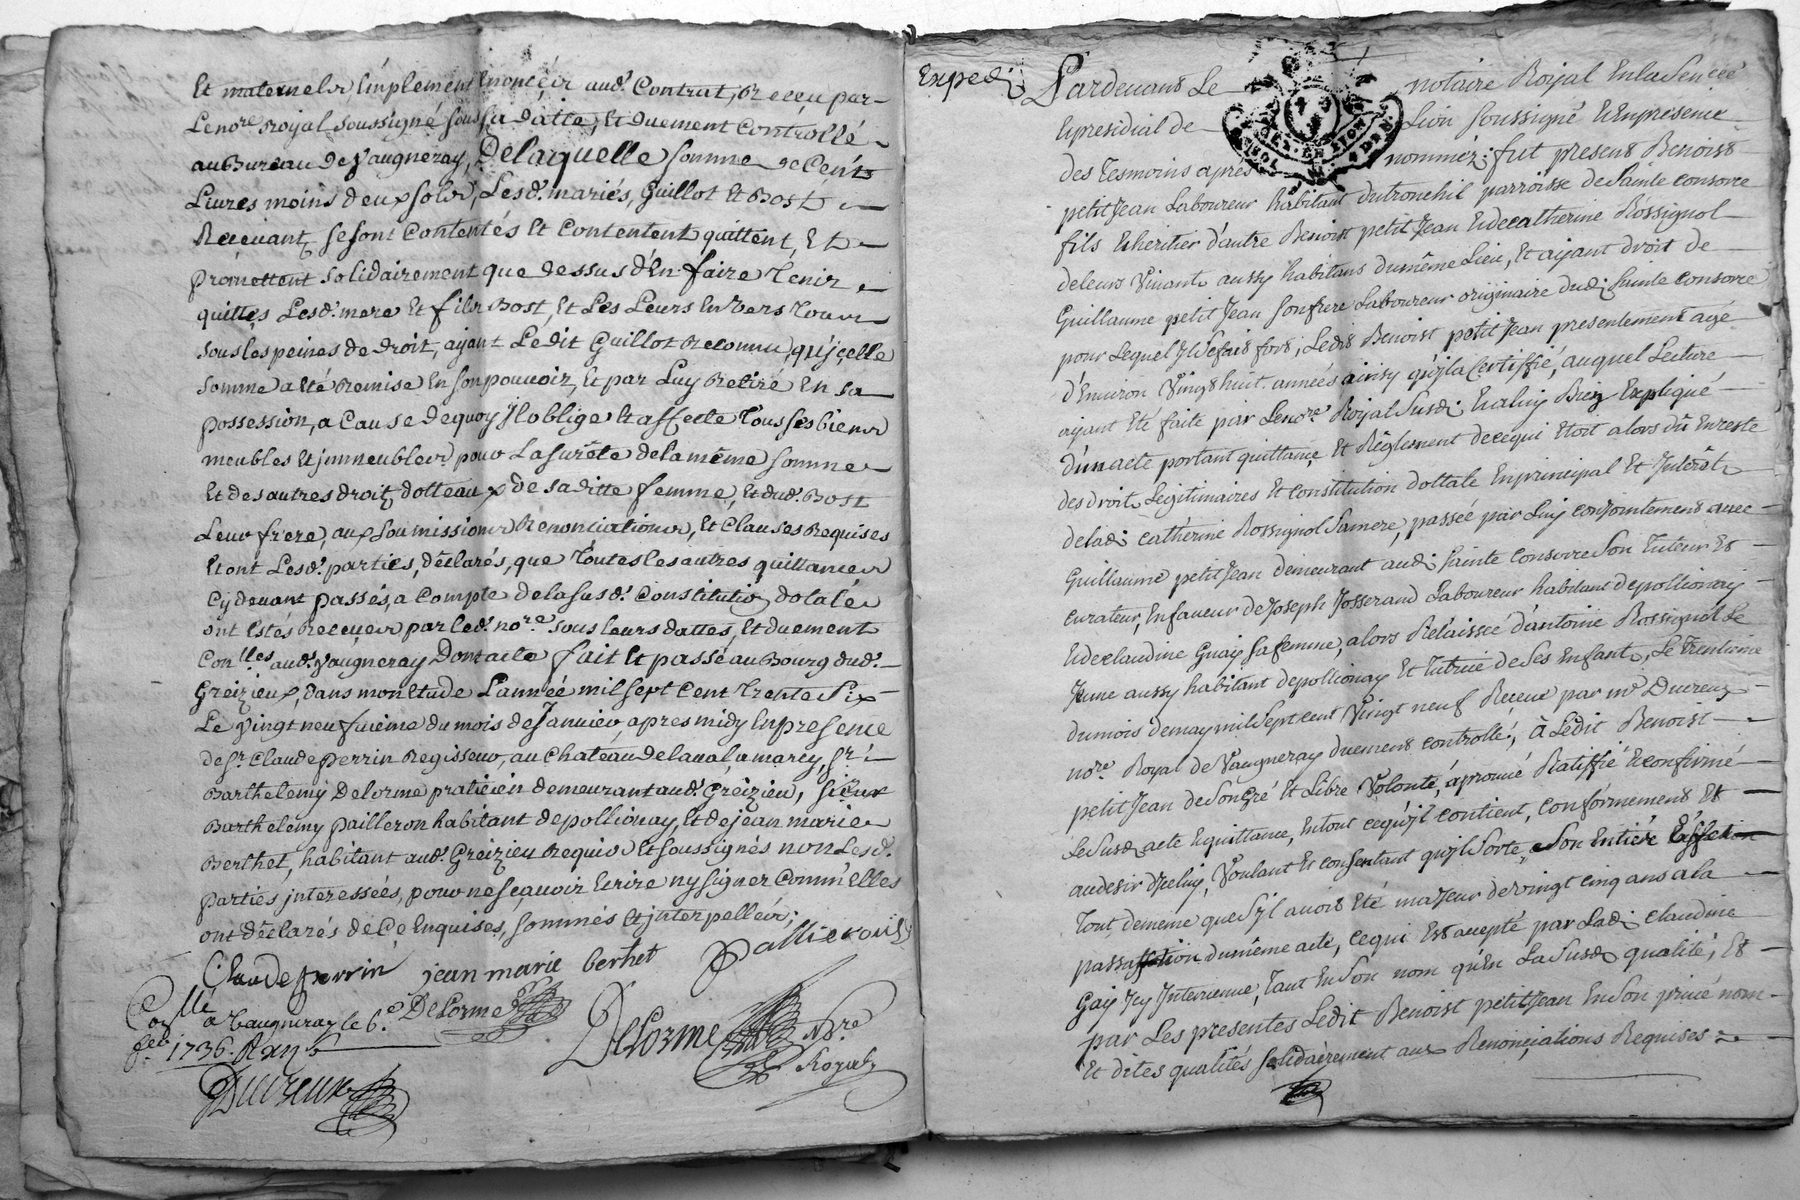 Et maternels, simplement Enonçéz aud. Contrat, Receu par
Lenore. Royal soussigné sous sa datte, Et duement controllé
au Bureau de Vaugneray, Delaquelle somme de Cent
Livres moins deux sols, Lesd. mariés, Guillot Et Bost
Recevant, se sont Contentés Et Contentent, quittent, Et
promettent solidairement que dessus d'En faire Tenir
quittes Lesd. mere Et fils Bost Et Les Leurs Envers Tous
sous les peines de droit, ajant Ledit Guillot Reconnu, qu'jçelle
somme a Eté Remise En son pouvoir, Et par Luy Retiré En sa
possession, a Cause de quoy Jl oblige Et affecte Tous ses biens
meubles Et jmmeubles pour La sureté de la même somme
Et des autres droitz dotteaux de sa ditte femme, Et dud. Bost
Leur frere, aux soumissions Renonciations, Et Clauses Requises
Et ont Lesd. parties, déclarés, que Toutes les autres quittances
cy devant passés, a Compte de la susd. Constitution dotale
ont Estés Receües par led. nore. sous leurs dattes, Et duement
Conlles aud. Vaugneray Dont acte fait Et passé au Bourg dud.
Greizieux, dans mon Etude L'année mil sept cent Trente Six
Le Vingt neufvieme du mois de Janvier, apres midy En presence
de Sr. Claude perrin Regisseur, au Chatéau de laval a marcy, Sr.
Barthelemy Delorme praticien demeurant aud. Gréizieu, sieur
Barthelemy pailleron habitant de pollionay, Et de jean marie
Berthet, habitant aud. Greizieu Requis Et soussignés non Lesd.
parties jnteressées, pour ne sçavoir Ecrire ny signer Comm'Elles
ont déclarés de Ce Enquises, sommés Et jnterpellés;
Claude perrin jean marie berhet
Collé a Vaugneray le 6e. Delorme
feb. 1736. R
Delorme Nore
Royal
Ducreux
Exped. Pardevant Le notaire Royal En la Senceé
Et presidial de Lion soussigné Et En presence
des Tesmoins aprés nommez; fut present Benoist
petit Jean Laboureur habitant du tronchil parroisse de Sainte Consorce
fils Et heritier d'autre Benoist petit Jean Et de catherine Rossignol
de leurs Vivants aussy habitans du même Lieu, Et aijant droit de
Guillaume petit Jean son frere Laboureur originaire dud. Sainte Consorce
pour Lequel Jl se fait fort, Ledit Benoist petit Jean presentement agé
d'Environ Vingt huit années ainsy qu'jl a Certiffié, auquel Lecture
ayant Eté faite par Lenore. Royal susd. Et a luy Bien Expliqué
d'un acte portant quittance Et Réglement de ce qui Etoit alors dû En reste
des droits Legitimaires Et constitution dottale En principal Et Intérêts
de lad. Catherine Rossignol sa mere, passée par Luy conjointement avec
Guillaume petit Jean demeurant aud. Sainte Consorce son Tuteur Et
Curateur, En faveur de Joseph Josserand Laboureur habitant de pollionay
Et de claudine Guay sa femme, alors Relaissée d'antoine Rossignol Le
Jeune aussy habitant de pollionay Et Tutrice de Ses Enfants, Le Trentième
du mois de may mil Sept cent Vingt neuf Receue par me. Ducreux
nore. Royal de Vaugneray duement controllé, à Ledit Benoist
petit Jean de Son Gré Et Libre Volonté, aprouvé Ratiffié Et confirmé
Le susd. acte Et quittance, En tout ce qu'jl contient, conformement Et
au desir d'jceluy, Voulant Et consentant qu'jl sorte Son Entiére
Tout de meme que s'jl avoit Eté majeur de vingt cinq ans a la
passassion du même acte, ce qui Est accepté par Lad. Claudine
Gay Jcy Intervenue, Tant En Son nom qu'En La Susd. qualité, Et
par Les presentes Ledit Benoist petit Jean En Son privé nom
Et dites qualités solidairement aux Renonciations Requises